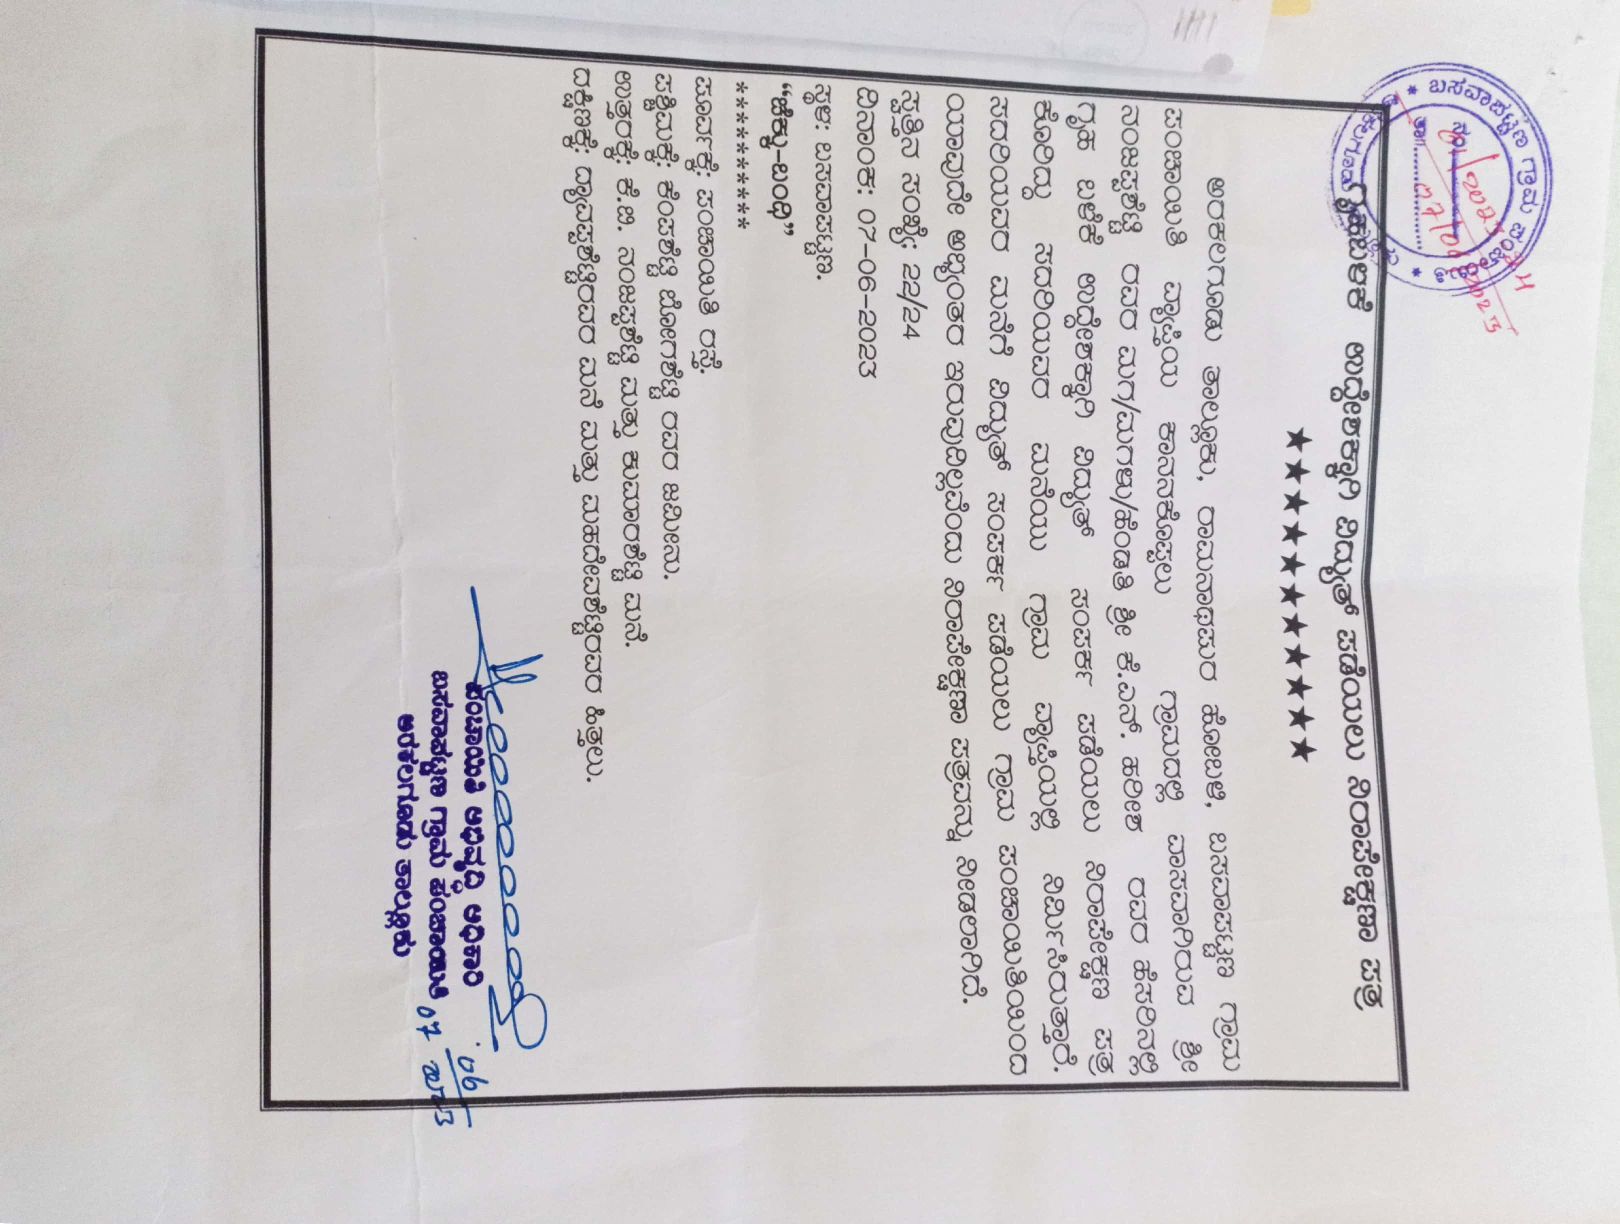 ಬಸವಾಪಟ್ಟಣ ಗ್ರಾಮ ಪಂಚಾಯಿತಿ
ಗೃಹಬಳಕೆ ಉದ್ದೇಶಕ್ಕಾಗಿ ವಿದ್ಯುತ್ ಪಡೆಯಲು ನಿರಾಪೇಕ್ಷಣಾ ಪತ್ರ
★★★★★★★★★★★
ಅರಕಲಗೂಡು ತಾಲ್ಲೂಕು, ರಾಮನಾಥಪುರ ಹೋಬಳಿ, ಬಸವಾಪಟ್ಟಣ ಗ್ರಾಮ
ಪಂಚಾಯಿತಿ ವ್ಯಾಪ್ತಿಯ ಕಾನನಕೊಪ್ಪಲು ಗ್ರಾಮದಲ್ಲಿ ವಾಸವಾಗಿರುವ ಶ್ರೀ
ನಂಜಪ್ಪಶೆಟ್ಟಿ ರವರ ಮಗ/ಮಗಳು/ಹೆಂಡತಿ ಶ್ರೀ ಕೆ.ಎನ್. ಹರೀಶ ರವರ ಹೆಸರಿನಲ್ಲಿ
ಗೃಹ ಬಳಕೆ ಉದ್ದೇಶಕ್ಕಾಗಿ ವಿದ್ಯುತ್ ಸಂಪರ್ಕ ಪಡೆಯಲು ನಿರಾಪೇಕ್ಷಣ ಪತ್ರ
ಕೋರಿದ್ದು ಸದರಿಯವರ ಮನೆಯು ಗ್ರಾಮ ವ್ಯಾಪ್ತಿಯಲ್ಲಿ ನಿರ್ಮಿಸಿರುತ್ತಾರೆ.
ಸದರಿಯವರ ಮನೆಗೆ ವಿದ್ಯುತ್ ಸಂಪರ್ಕ ಪಡೆಯಲು ಗ್ರಾಮ ಪಂಚಾಯಿತಿಯಿಂದ
ಯಾವುದೇ ಅಭ್ಯಂತರ ಇರುವುದಿಲ್ಲವೆಂದು ನಿರಾಪೇಕ್ಷಣಾ ಪತ್ರವನ್ನು ನೀಡಲಾಗಿದೆ.
ಸ್ವತ್ತಿನ ಸಂಖ್ಯೆ: 22/24
ದಿನಾಂಕ: 07-06-2023
ಸ್ಥಳ: ಬಸವಾಪಟ್ಟಣ.
“ಚೆಕ್ಕು-ಬಂಧಿ”
**********
ಪೂರ್ವಕ್ಕೆ: ಪಂಚಾಯಿತಿ ರಸ್ತೆ.
ಪಶ್ಚಿಮಕ್ಕೆ: ಕೆಂಪಶೆಟ್ಟಿ ಜೋಗಶೆಟ್ಟಿ ರವರ ಜಮೀನು.
ಉತ್ತರಕ್ಕೆ: ಕೆ.ಜಿ. ನಂಜಪ್ಪಶೆಟ್ಟಿ ಮತ್ತು ಕುಮಾರಶೆಟ್ಟಿ ಮನೆ.
ದಕ್ಷಿಣಕ್ಕೆ: ದ್ಯಾವಪ್ಪಶೆಟ್ಟಿರವರ ಮನೆ ಮತ್ತು ಮಹದೇವಶೆಟ್ಟಿರವರ ಹಿತ್ತಲು.
ಪಂಚಾಯಿತಿ ಅಭಿವೃದ್ಧಿ ಅಧಿಕಾರಿ
ಬಸವಾಪಟ್ಟಣ ಗ್ರಾಮ ಪಂಚಾಯಿತಿ
ಅರಕಲಗೂಡು ತಾಲ್ಲೂಕು
07/06/2023